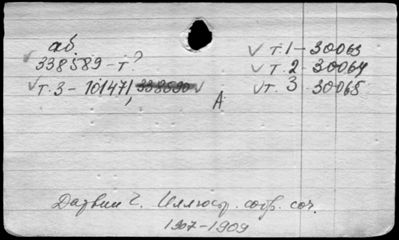 аб.
338589-т?
√ т. 3 - 101471, 338590 √
А
√ т. 1 - 30063
√ т. 2 - 30064
√ т. 3 - 30065
Дарвин Ч. Иллюстр. собр. соч.
1907-1909